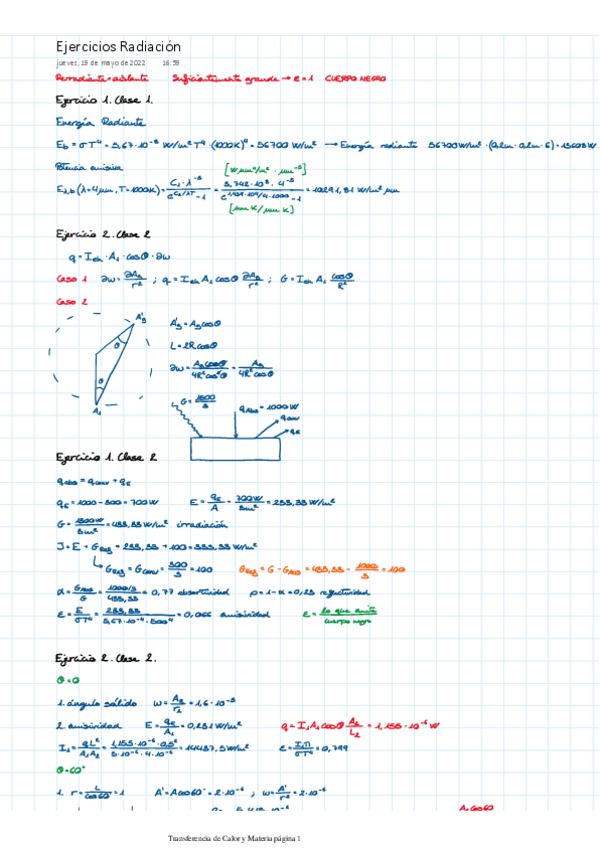 Ejercicios Radiación
jueves, 19 de mayo de 2022 16:59
Rerradiante=aislante Suficientemente grande → ε=1 CUERPO NEGRO
Ejercicio 1. Clase 1.
Energía Radiante
Eb = σT⁴ = 5,67·10⁻⁸ W/m²T⁴·(1000K)⁴ = 56700 W/m² → Energía radiante 56700W/m²·(0,2m·0,2m·6) = 13608W
Potencia emisiva [Wμm⁴/m² · μm⁻⁵]
Eλ,b (λ=4μm, T=1000K) = C₁·λ⁻⁵ / e^(C₂/λT) -1 = 3,742·10⁸·4⁻⁵ / = 10291,81 W/m²μm
[μmK/μmK]
Ejercicio 2. Clase 2
q = Ien·A₁·cosθ·∂w
Caso 1 ∂w = ∂A₂/r² ; q = Ien A₁ cosθ ∂A₂/r² ; G = Ien A₁ cosθ/R²
Caso 2
A'₂ A'₂ = A₂cosθ
θ L = 2Rcosθ
θ ∂w = A₂cosθ/4R²cos²θ = A₂/4R²cosθ
A₁
G = 1300/3 qAbs = 1000W
qconv
qE
Ejercicio 1. Clase 2
qabs = qconv + qE
qE = 1000-300 = 700W E = qE/A = 700W/3m² = 233,33W/m²
G = 1300W/3m² = 433,33W/m² irradiación
J = E + Gref = 233,33 + 100 = 333,33W/m²
Gref = Gconv = 300/3 = 100 Gref = G - GAbs = 433,33 - 1000/3 = 100
α = GAbs/G = 1000/3 / 433,33 = 0,77 absortividad ρ = 1-α = 0,23 reflectividad
ε = E/σT⁴ = 233,33 / 5,67·10⁻⁸·500⁴ = 0,066 emisividad ε = lo que emite / cuerpo negro
Ejercicio 2. Clase 2.
θ=0
1. ángulo sólido w = A₂/r² = 1,6·10⁻⁵
2. emisividad E = qE/A₁ = 0,231W/m² q = I₁A₁cosθ A₂/L₂ = 1,155·10⁻⁶W
I₁ = qL²/A₁A₂ = 1,155·10⁻⁶·0,5² / 5·10⁻⁶·4·10⁻⁶ = 14437,5W/m² ε = I₁π/σT⁴ = 0,799
θ=60°
1. r = L/cos60° = 1 A' = Acos60° = 2·10⁻⁶ ; w = A'/r² = 2·10⁻⁶
Transferencia de Calor y Materia página 1